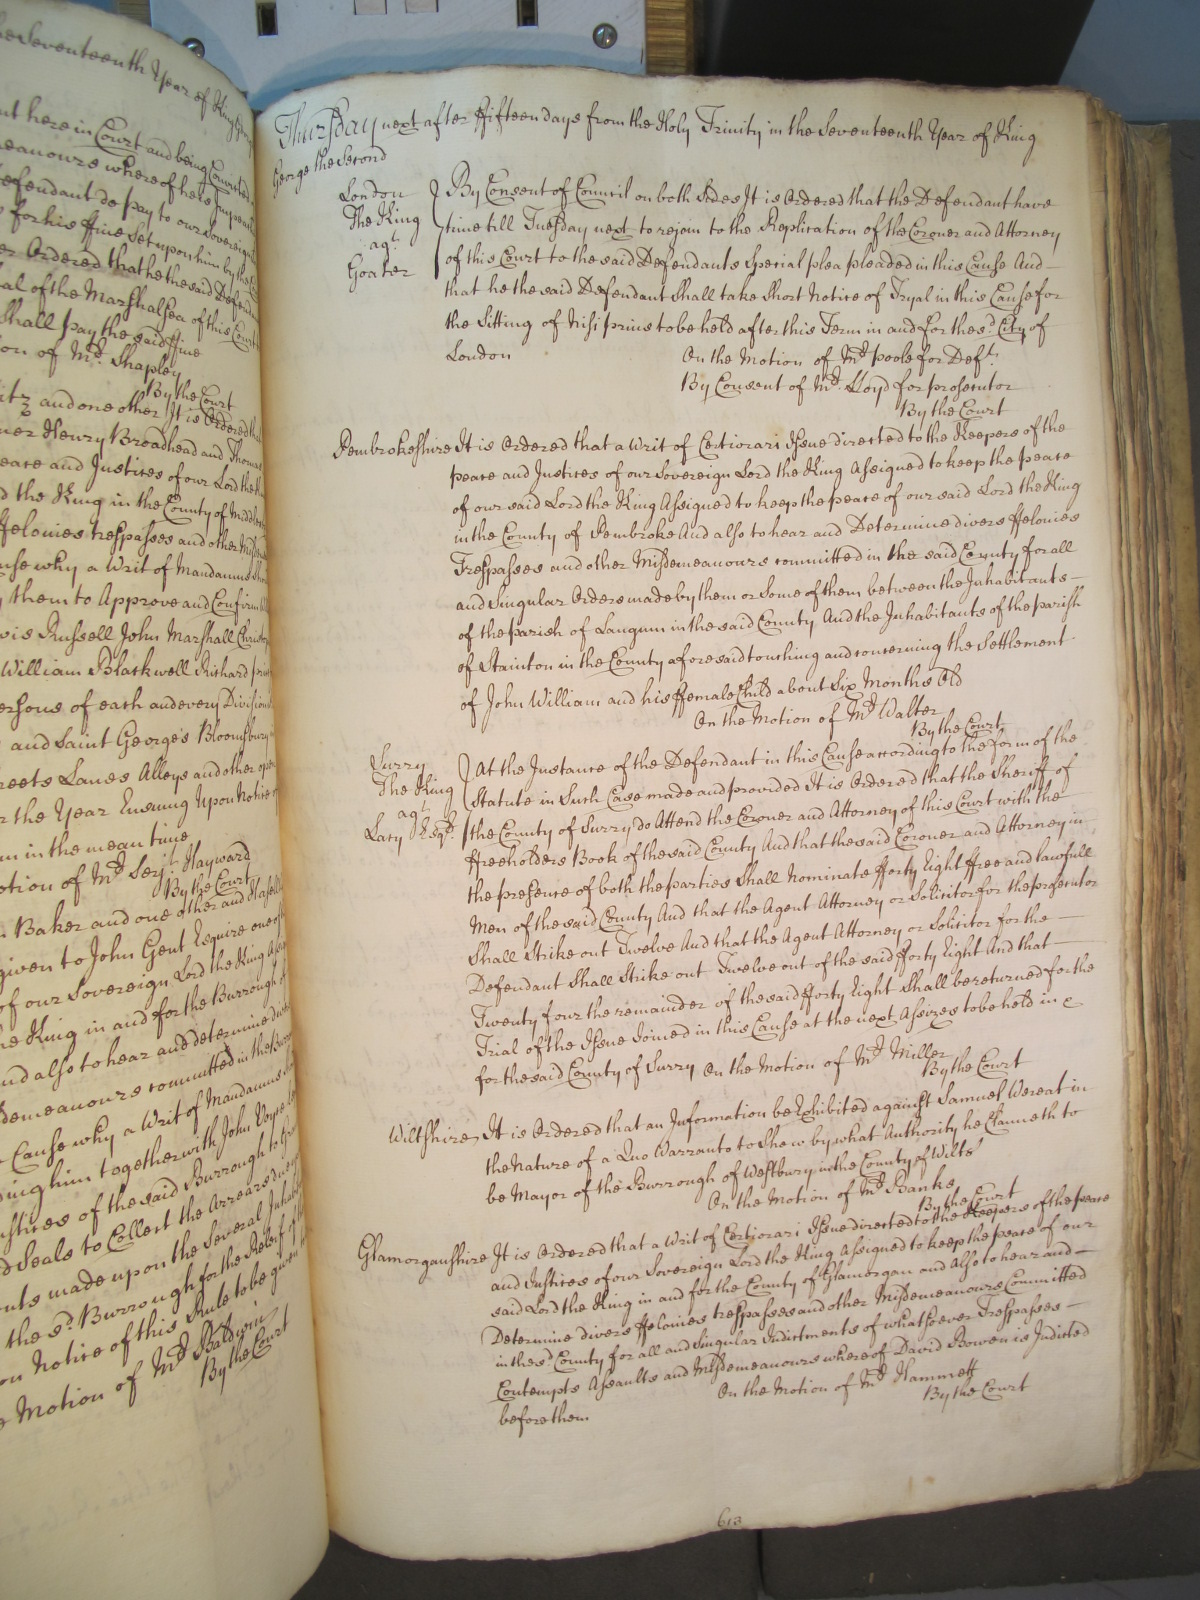 the Seventeenth Year of King
here in Court and being Convicted
meanours whereof he is Impeached
Defendant do pay to our Sovereign
for his ffine Set upon him by the
Ordered that he the said Defendant
al of the Marshalsea of this Court
Shall pay the said ffine
ion of Mr. Shapley
By the Court
itz and one other It is Ordered that
ner Henry Broadhead and Thomas
eace and Justices of our Lord the
d the King in the County of Middlesex
ffelonies trespasses and other
use why a Writ of Mandamus Should
them to Approve and Confirm
is Russell John Marshall
William Blackwell Richard
ersons of each and every Division
and Saint George's Bloomsbury
reets Lanes Alleys and other open
r the Year Ensuing Upon Notice
m in the mean time
otion of Mr. Serjt. Hayward
By the Court
Baker and one other and
given to John Gent Esquire one of
of our Sovereign Lord the King
he King in and for the Burrough
nd also to hear and determine
demeanours committed in the
Cause why a Writ of Mandamus
ing him together with John
ustices of the said Burrough to
d Seals to Collect the Arrears due
ents made upon the Several
the sd. Burrough for the Releif of the
on Notice of this Rule to be given
Motion of Mr. Baldwin
By the Court
Thursday next after ffifteen days from the Holy Trinity in the Seventeenth Year of King
George the Second
London
The King
agt.
Goater
By Consent of Council on both Sides It is Ordered that the Defendant have
time till Tuesday next to rejoin to the Replication of the Coroner and Attorney
of this Court to the said Defendants Special plea pleaded in this Cause And
that he the said Defendant Shall take Short Notice of Tryal in this Cause for
the Sitting of Nisi prius to be held after this Term in and for the sd. City of
London
On the Motion of Mr. poole for Deft.
By Consent of Mr. Lloyd for prosecutor
By the Court
Pembrokeshire It is Ordered that a Writ of Certiorari Issue directed to the Keepers of the
peace and Justices of our Sovereign Lord the King Assigned to keep the peace
of our said Lord the King Assigned to keep the peace of our said Lord the King
in the County of Pembroke And also to hear and Determine divers ffelonies
Trespasses and other Misdemeanours committed in the said County for all
and Singular Orders made by them or Some of them between the Inhabitants
of the parish of Langum in the said County And the Inhabitants of the parish
of Stainton in the County aforesaid touching and concerning the Settlement
of John William and his ffemale Child about Six Months Old
On the Motion of Mr. Walter
By the Court
Surry
The King
agt.
Lacy Esqr.
At the Instance of the Defendant in this Cause according to the form of the
Statute in Such Case made and provided It is Ordered that the Sheriff of
the County of Surry do Attend the Coroner and Attorney of this Court with the
ffreeholders Book of the said County And that the said Coroner and Attorney in
the presence of both the parties Shall Nominate fforty Eight ffree and lawfull
Men of the said County And that the Agent Attorney or Solicitor for the prosecutor
Shall Strike out Twelve And that the Agent Attorney or Solicitor for the
Defendant Shall Strike out Twelve out of the said fforty Eight And that
Twenty four the remainder of the said fforty Eight Shall be returned for the
Trial of the Issue Joined in this Cause at the next Assizes to be held in &
for the said County of Surry On the Motion of Mr. Miller
By the Court
Wiltshire It is Ordered that an Information be Exhibited against Samuel Wereat in
the Nature of a Quo Warranto to Shew by what Authority he Claimeth to
be Mayor of the Burrough of Westbury in the County of Wilts
On the Motion of Mr. Banks
By the Court
Glamorganshire It is Ordered that a Writ of Certiorari Issue directed to the Keepers of the peace
and Justices of our Sovereign Lord the King Assigned to keep the peace of our
said Lord the King in and for the County of Glamorgan and Also to hear and
Determine divers ffelonies trespasses and other Misdemeanours Committed
in the sd. County for all and Singular Indictments of whatsoever Trespasses
Contempts Assaults and Misdemeanours whereof David Bowen is Indicted
before them
On the Motion of Mr. Hammett
By the Court